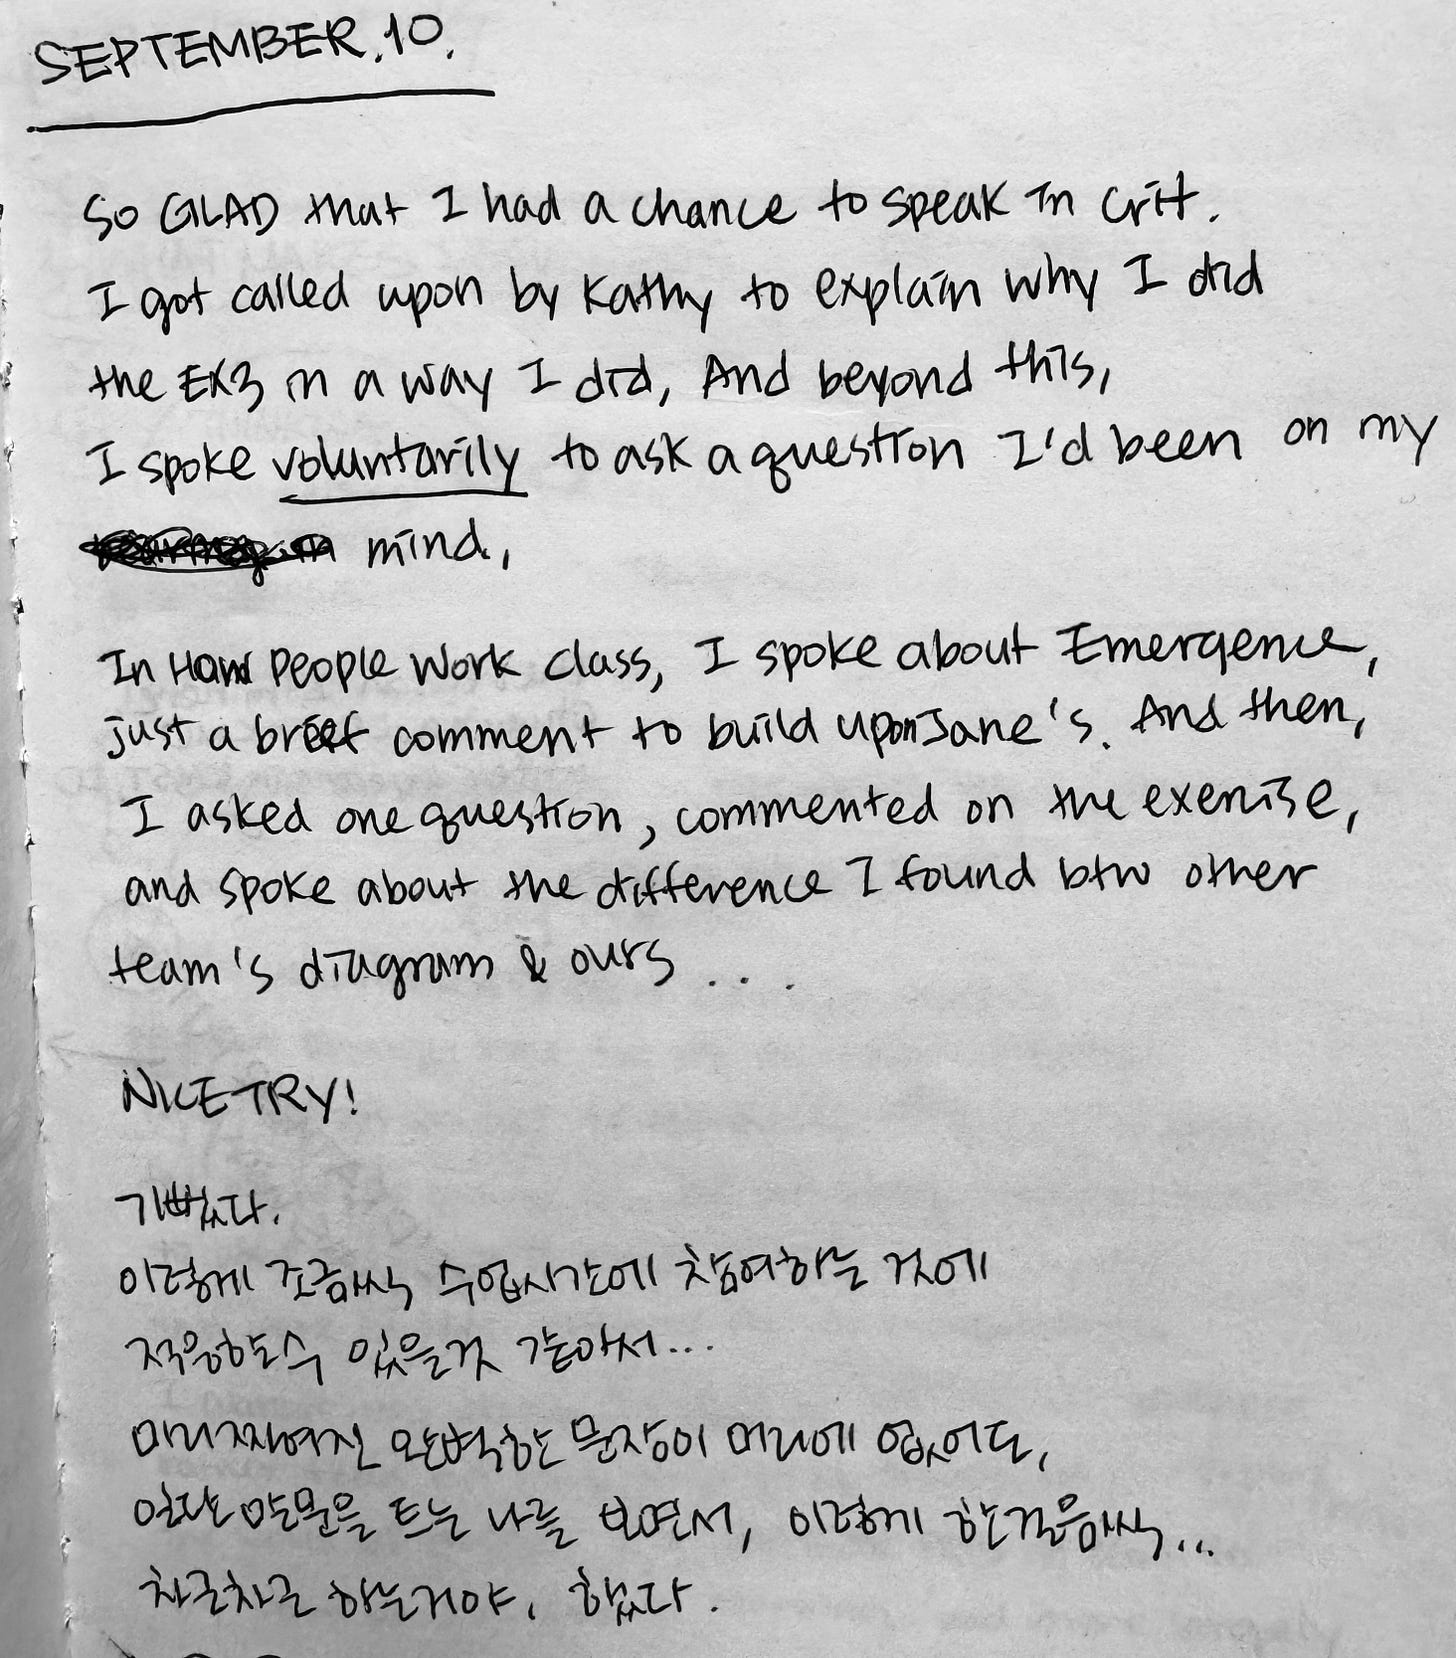 SEPTEMBER.10.
So GLAD that I had a chance to speak in crit.
I got called upon by Kathy to explain why I did
the EX3 in a way I did, And beyond this,
I spoke voluntarily to ask a question I'd been on my
mind.,
In How PEOPLE Work class, I spoke about Emergence,
just a brief comment to build upon Jane's. And then,
I asked one question, commented on the exercise,
and spoke about the difference I found btw other
team's diagram & ours ...
NICE TRY!
기뻤다.
이렇게 조금씩 수업시간에 참여하는 것에
적응할 수 있을것 같아서...
미리 짜여진 완벽한 문장이 머리에 없어도,
일단 말문을 트는 나를 보면서, 이렇게 한걸음씩...
차근차근 하는거야. 했다.